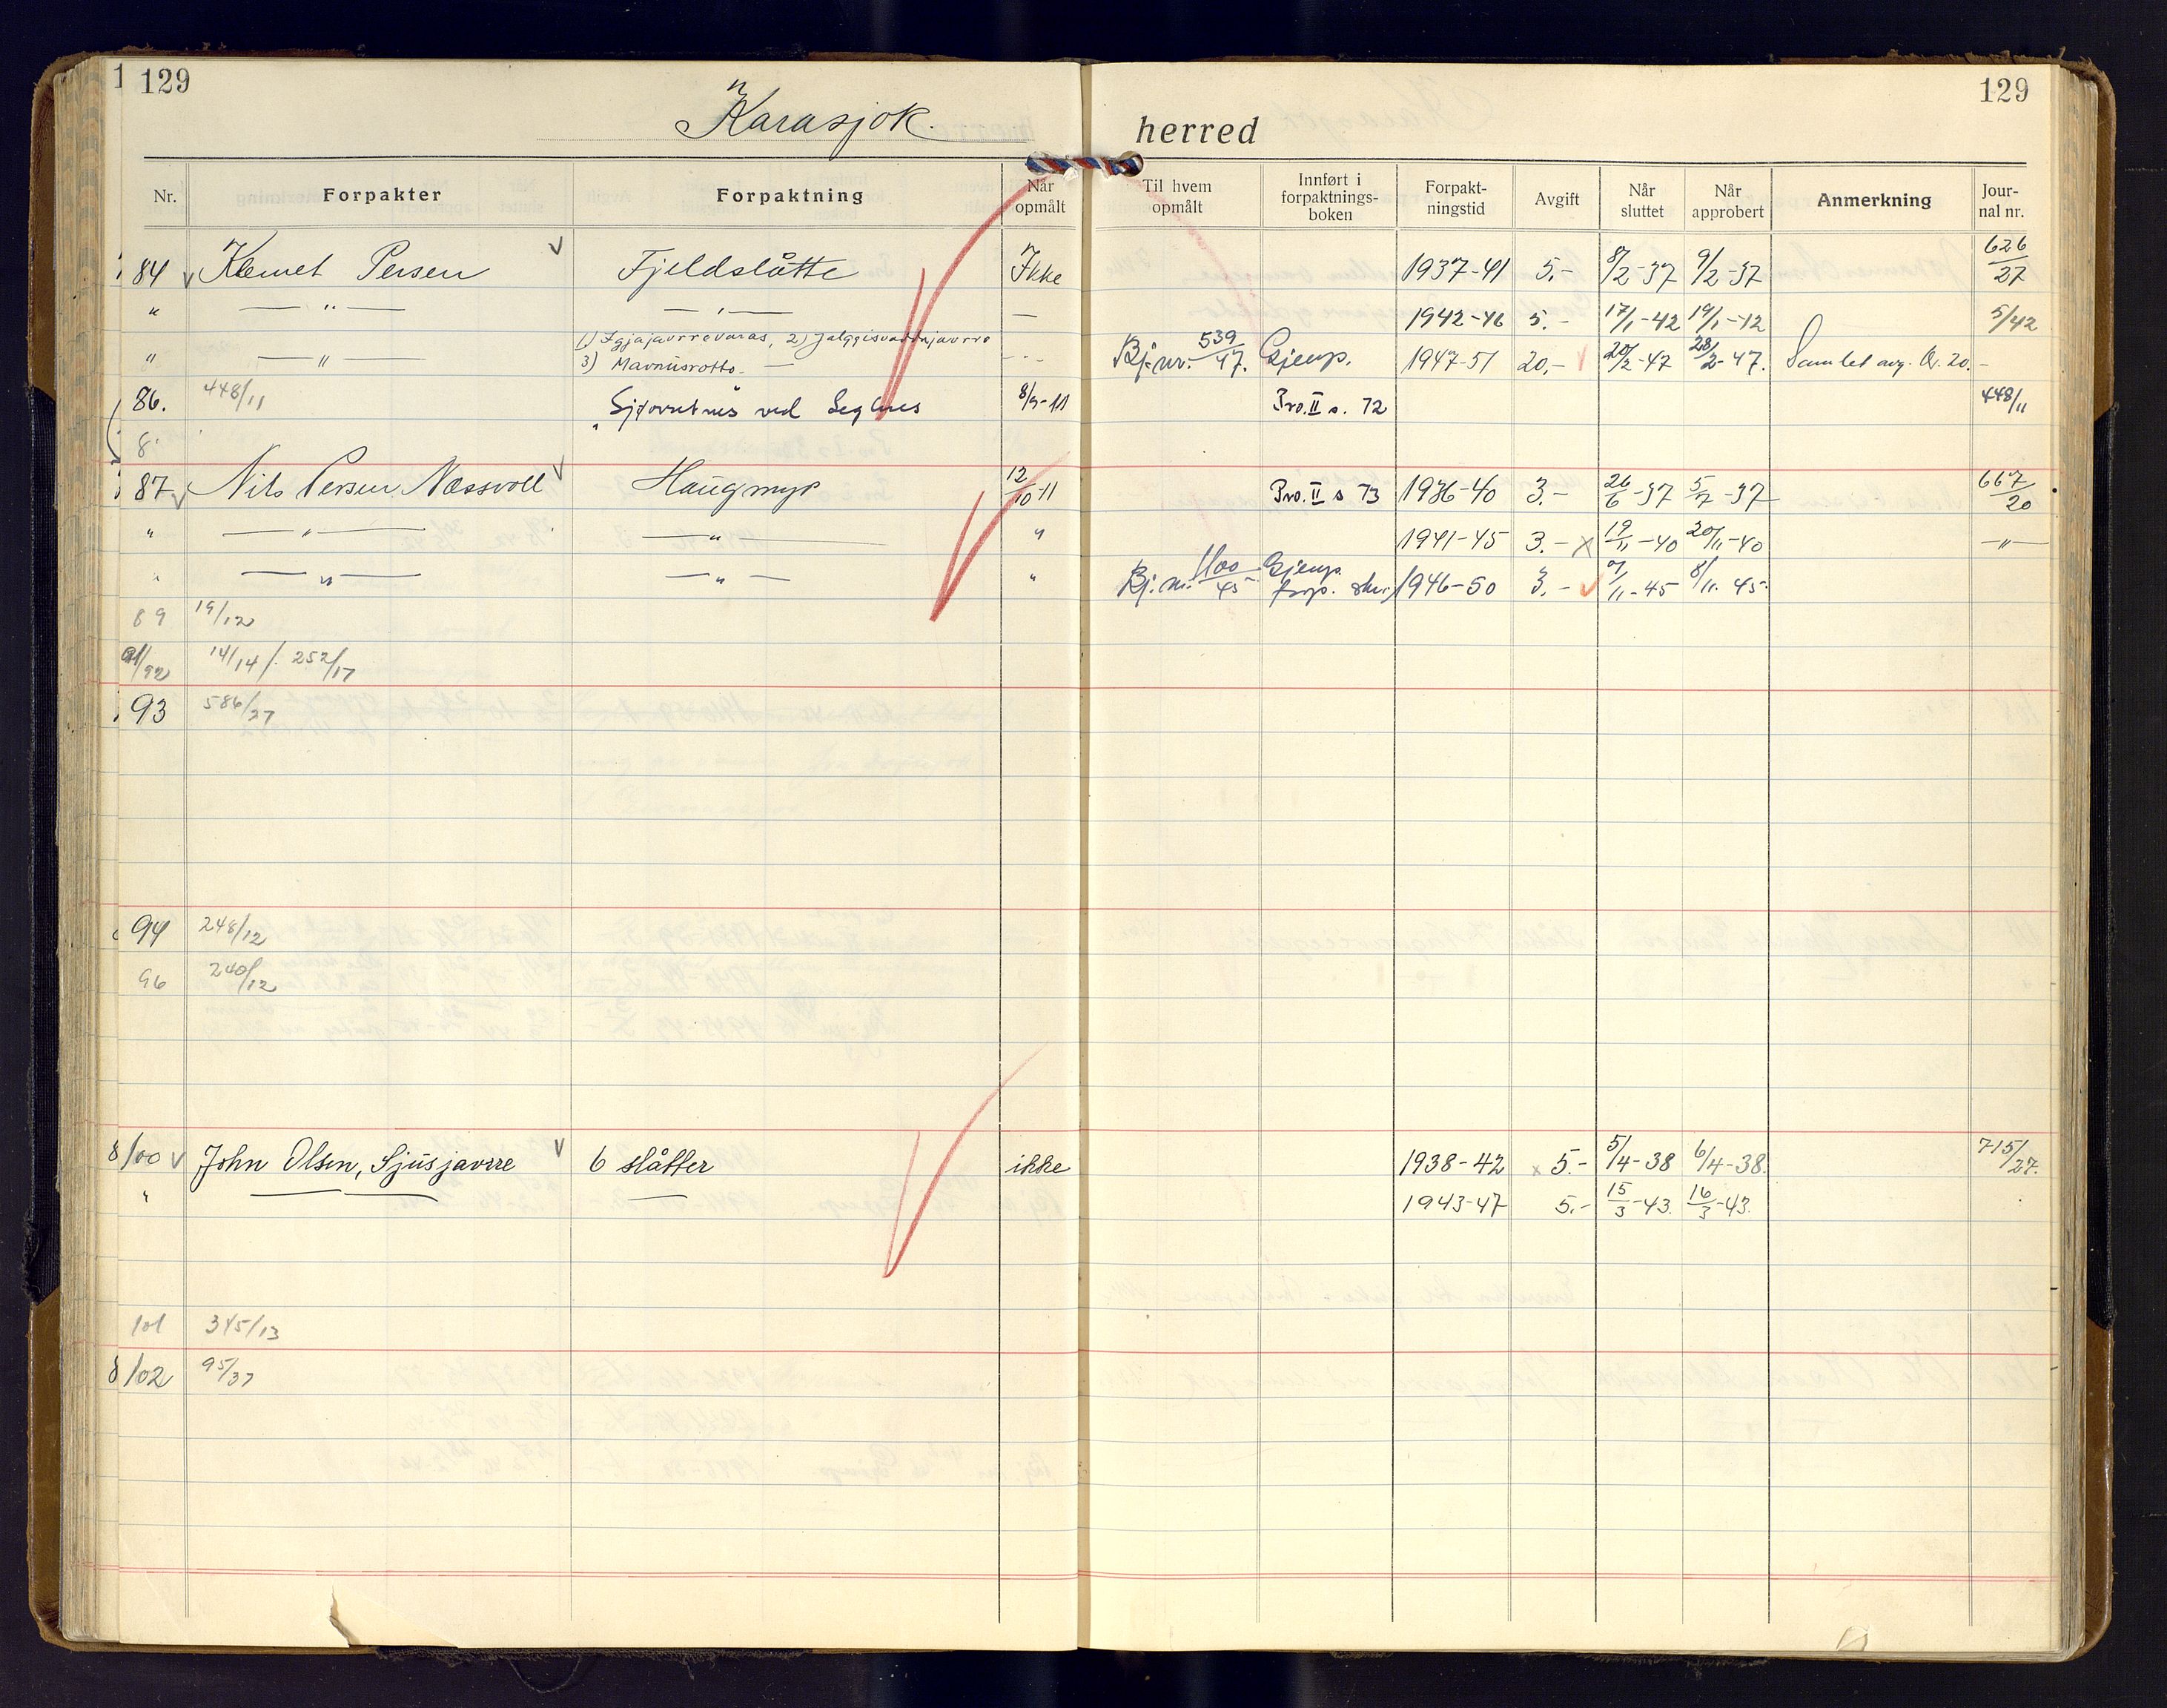 129 129
Karasjok. herred
Nr. Forpakter Forpaktning Når opmålt Til hvem opmålt Innført i forpaktnings-boken Forpakt-ningstid Avgift Når sluttet Når approbert Anmerkning Jour-nal nr.
84 Klemet Persen Fjeldslåtte Ikke 1937-41 5.- 8/2-37 9/2-37 626/27
" —"— —"— — 1942-46 5.- 17/1-42 19/1-42 5/42
1) Igjajavrrevaras, 2) Jalggisvaddnjavrre
" —"— 3) Mavnusrotto. — -"- Bj.nr. 539/47. Gjenp. 1947-51 20.- 20/2-47 28/2-47. Samlet avg. Kr. 20.-
86. 448/11 Sjdovvetnes ved Seglnes 8/9-11 Pro. II s. 72 448/11
8.
87 Nils Persen Næssvoll Haugmyr 12/10-11 Pro. II s 73 1936-40 3.- 26/6-37 5/7-37 667/20
" —"— —"— " 1941-45 3.- 19/11-40 20/11-40 —"—
" —"— —"— " Bj. nr. 1100/45 Gjenp. forp. skr. 1946-50 3.- 7/11-45 8/11. 45.
89 19/12
91/92 14/14 /. 252/17
93 586/27
94 248/12
96 240/12
8/100 John Olsen, Sjusjavrre 6 slåtter ikke 1938-42 5.- 5/4-38 6/4-38. 715/27.
" — — — 1943-47 5.- 15/3-43. 16/3-43.
101 345/13
8/102 95/37